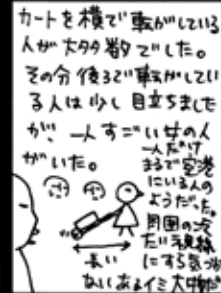 カートを横で転がしている
人が大多数でした。
その分後ろで転がしてい
る人は少し目立ちました
が、一人すごい女の人
がいた。
一人だけ
まるで空港
にいる人の
ようだった。
周囲の冷
たい視線
にすら気づか
ないあるイミ大物だ
長い